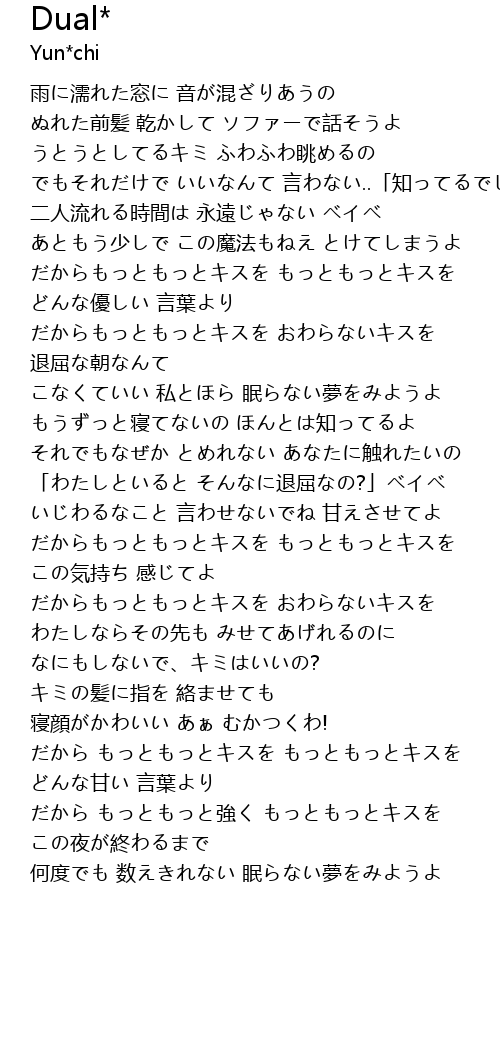 Dual*
Yun*chi
雨に濡れた窓に 音が混ざりあうの
ぬれた前髪 乾かして ソファーで話そうよ
うとうとしてるキミ ふわふわ眺めるの
でもそれだけで いいなんて 言わない..「知ってるでし
二人流れる時間は 永遠じゃない ベイベ
あともう少しで この魔法もねえ とけてしまうよ
だからもっともっとキスを もっともっとキスを
どんな優しい 言葉より
だからもっともっとキスを おわらないキスを
退屈な朝なんて
こなくていい 私とほら 眠らない夢をみようよ
もうずっと寝てないの ほんとは知ってるよ
それでもなぜか とめれない あなたに触れたいの
「わたしといると そんなに退屈なの?」ベイベ
いじわるなこと 言わせないでね 甘えさせてよ
だからもっともっとキスを もっともっとキスを
この気持ち 感じてよ
だからもっともっとキスを おわらないキスを
わたしならその先も みせてあげれるのに
なにもしないで、キミはいいの?
キミの髪に指を 絡ませても
寝顔がかわいい あぁ むかつくわ!
だから もっともっとキスを もっともっとキスを
どんな甘い 言葉より
だから もっともっと強く もっともっとキスを
この夜が終わるまで
何度でも 数えきれない 眠らない夢をみようよ